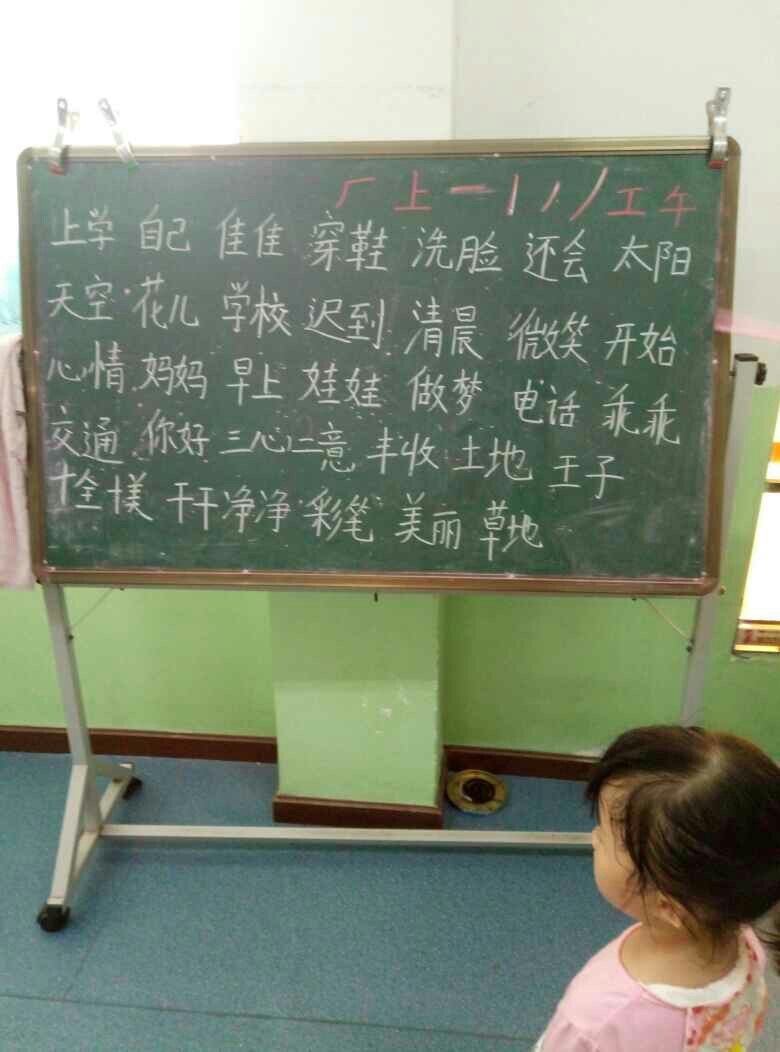 厂 上 一 丨 丿 丿 工 午
上学 自己 佳佳 穿鞋 洗脸 还会 太阳
天空 花儿 学校 迟到 清晨 微笑 开始
心情 妈妈 早上 娃娃 做梦 电话 乖乖
交通 你好 三心二意 丰收 土地 王子
十全十美 干干净净 彩笔 美丽 草地